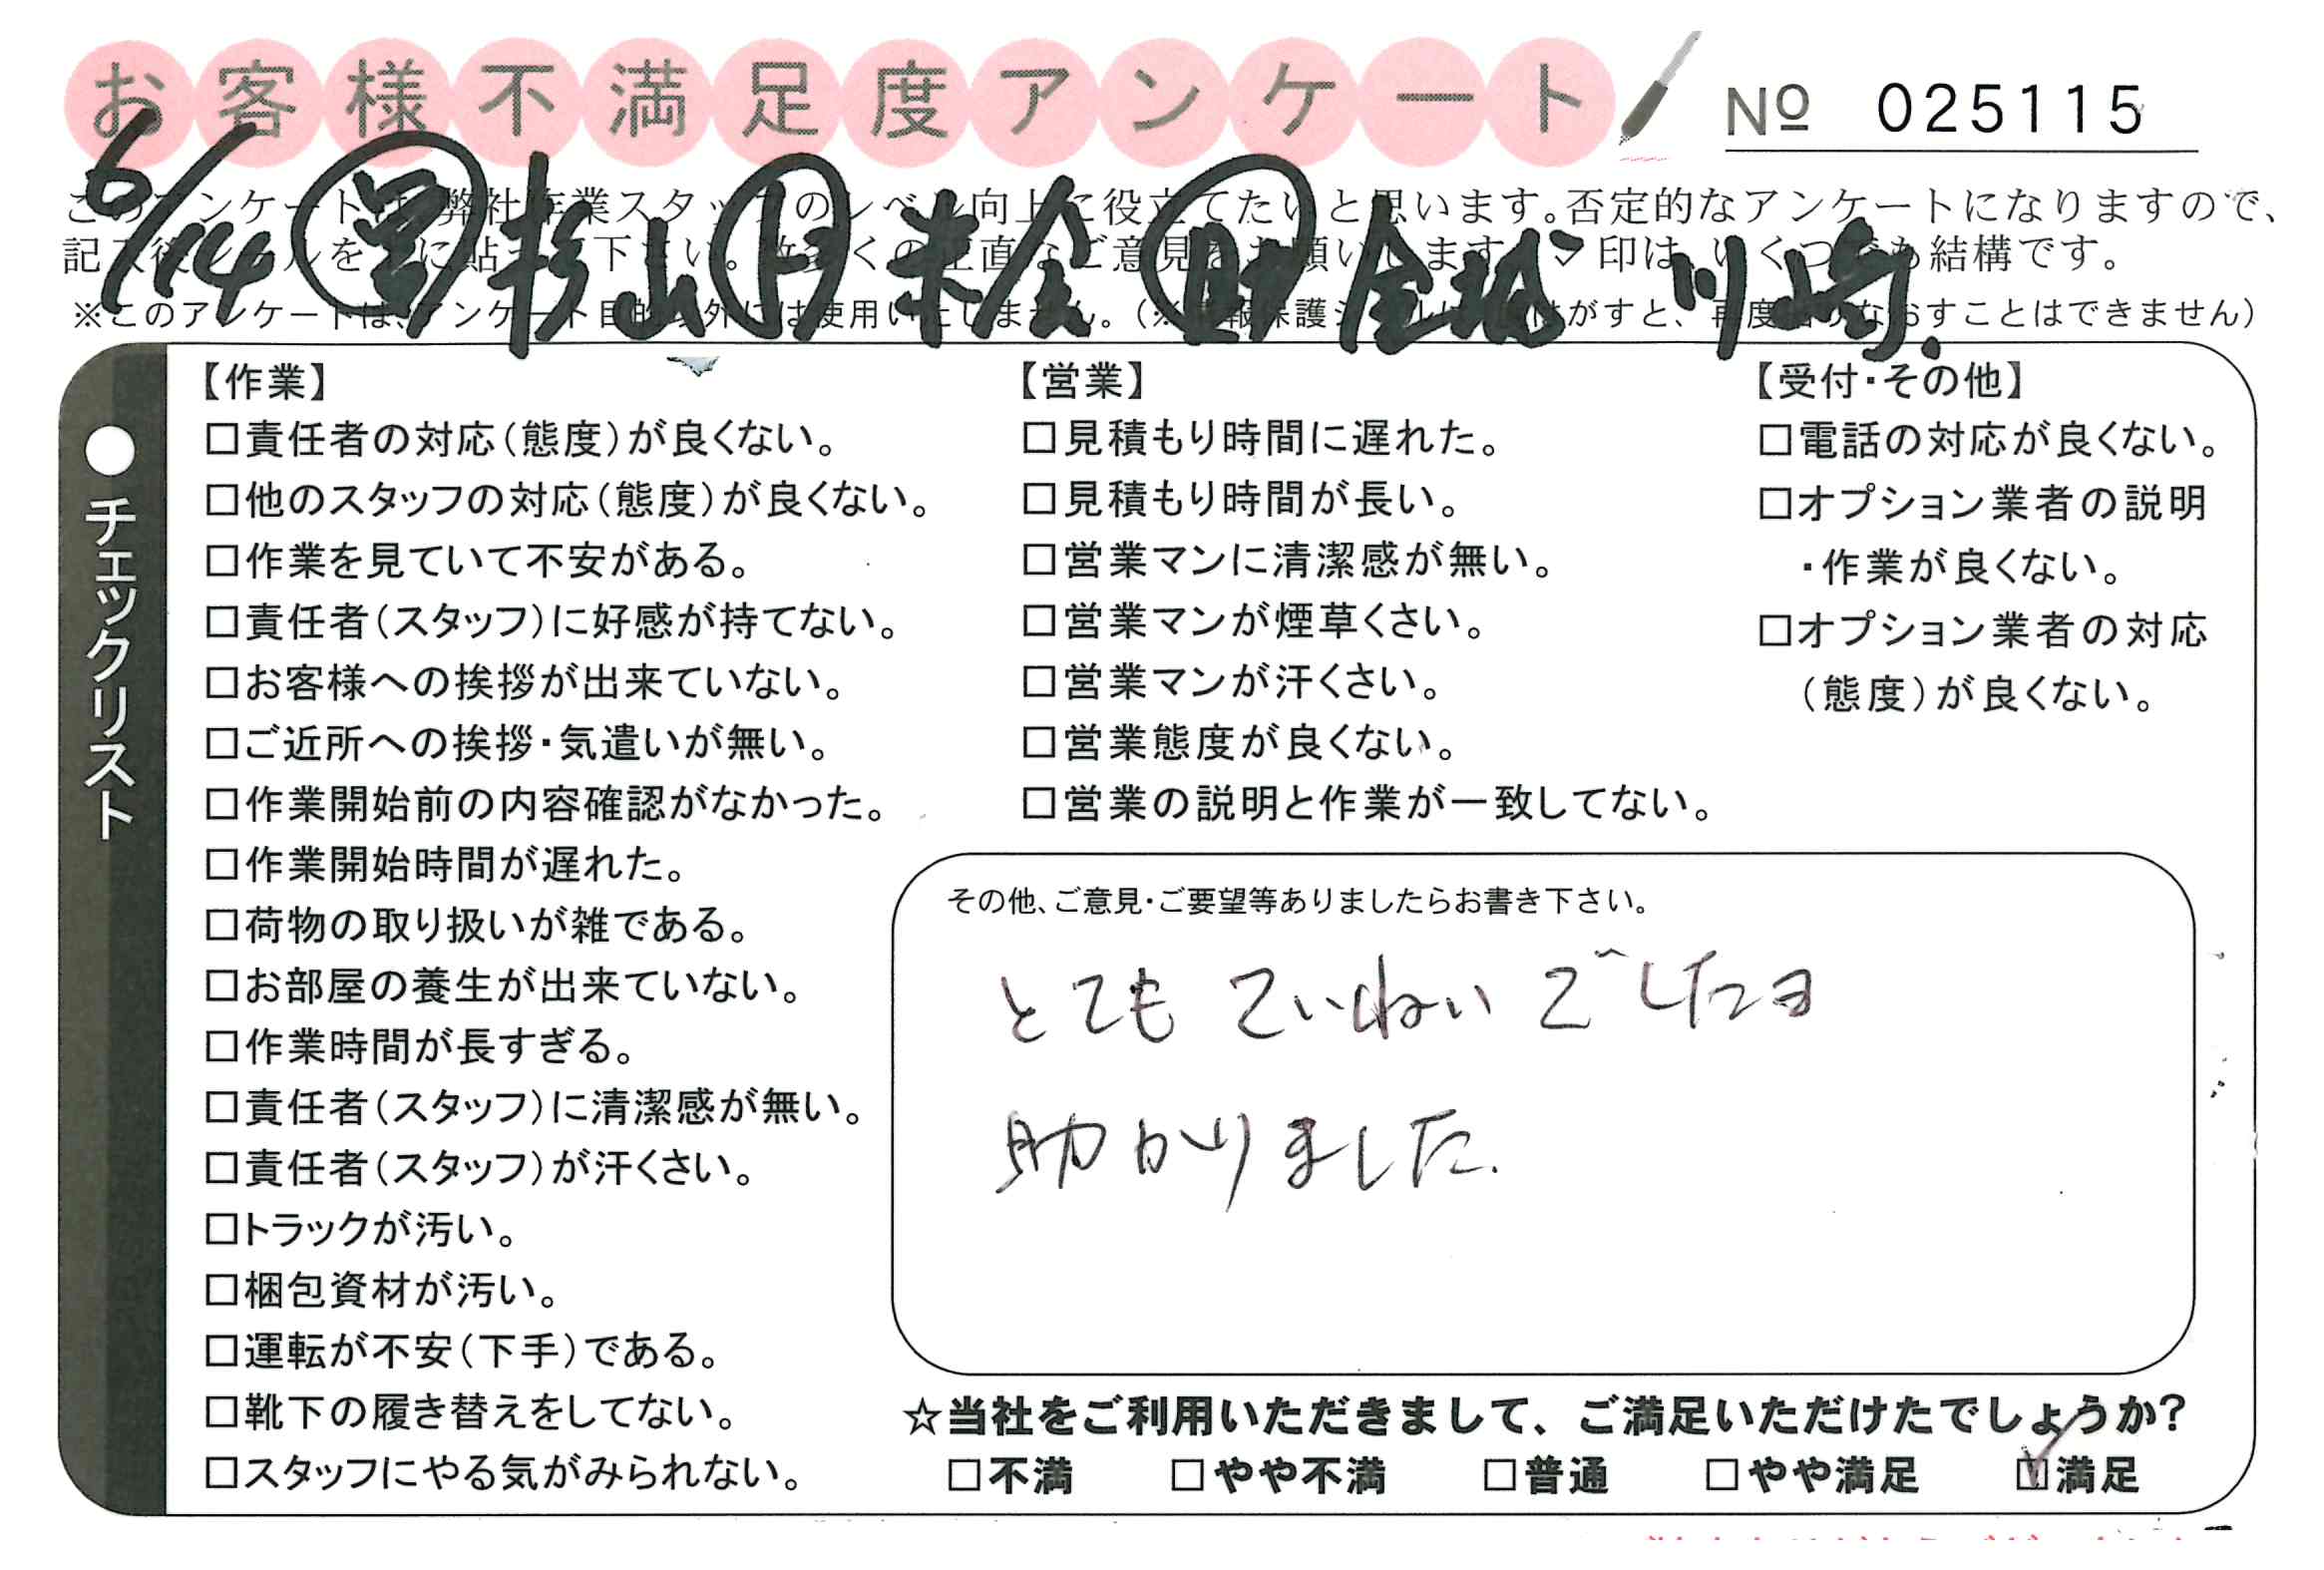 お客様不満足度アンケート
№ 025115
6/14 営 杉山 月 米倉 助 金城 川崎.
このアンケートは、弊社作業スタッフのレベル向上に役立てたいと思います。否定的なアンケートになりますので、
記入後シールを上に貼って下さい。数多くの正直なご意見をお願いします。レ印は、いくつでも結構です。
※このアンケートは、アンケート目的以外には使用いたしません。(※情報保護シールは一度はがすと、再度貼りなおすことはできません)
●チェックリスト
【作業】
□責任者の対応(態度)が良くない。
□他のスタッフの対応(態度)が良くない。
□作業を見ていて不安がある。
□責任者(スタッフ)に好感が持てない。
□お客様への挨拶が出来ていない。
□ご近所への挨拶・気遣いが無い。
□作業開始前の内容確認がなかった。
□作業開始時間が遅れた。
□荷物の取り扱いが雑である。
□お部屋の養生が出来ていない。
□作業時間が長すぎる。
□責任者(スタッフ)に清潔感が無い。
□責任者(スタッフ)が汗くさい。
□トラックが汚い。
□梱包資材が汚い。
□運転が不安(下手)である。
□靴下の履き替えをしてない。
□スタッフにやる気がみられない。
【営業】
□見積もり時間に遅れた。
□見積もり時間が長い。
□営業マンに清潔感が無い。
□営業マンが煙草くさい。
□営業マンが汗くさい。
□営業態度が良くない。
□営業の説明と作業が一致してない。
【受付・その他】
□電話の対応が良くない。
□オプション業者の説明
・作業が良くない。
□オプション業者の対応
(態度)が良くない。
その他、ご意見・ご要望等ありましたらお書き下さい。
とても ていねい でしたヨ
助かりました.
☆当社をご利用いただきまして、ご満足いただけたでしょうか?
□不満 □やや不満 □普通 □やや満足 ☑満足